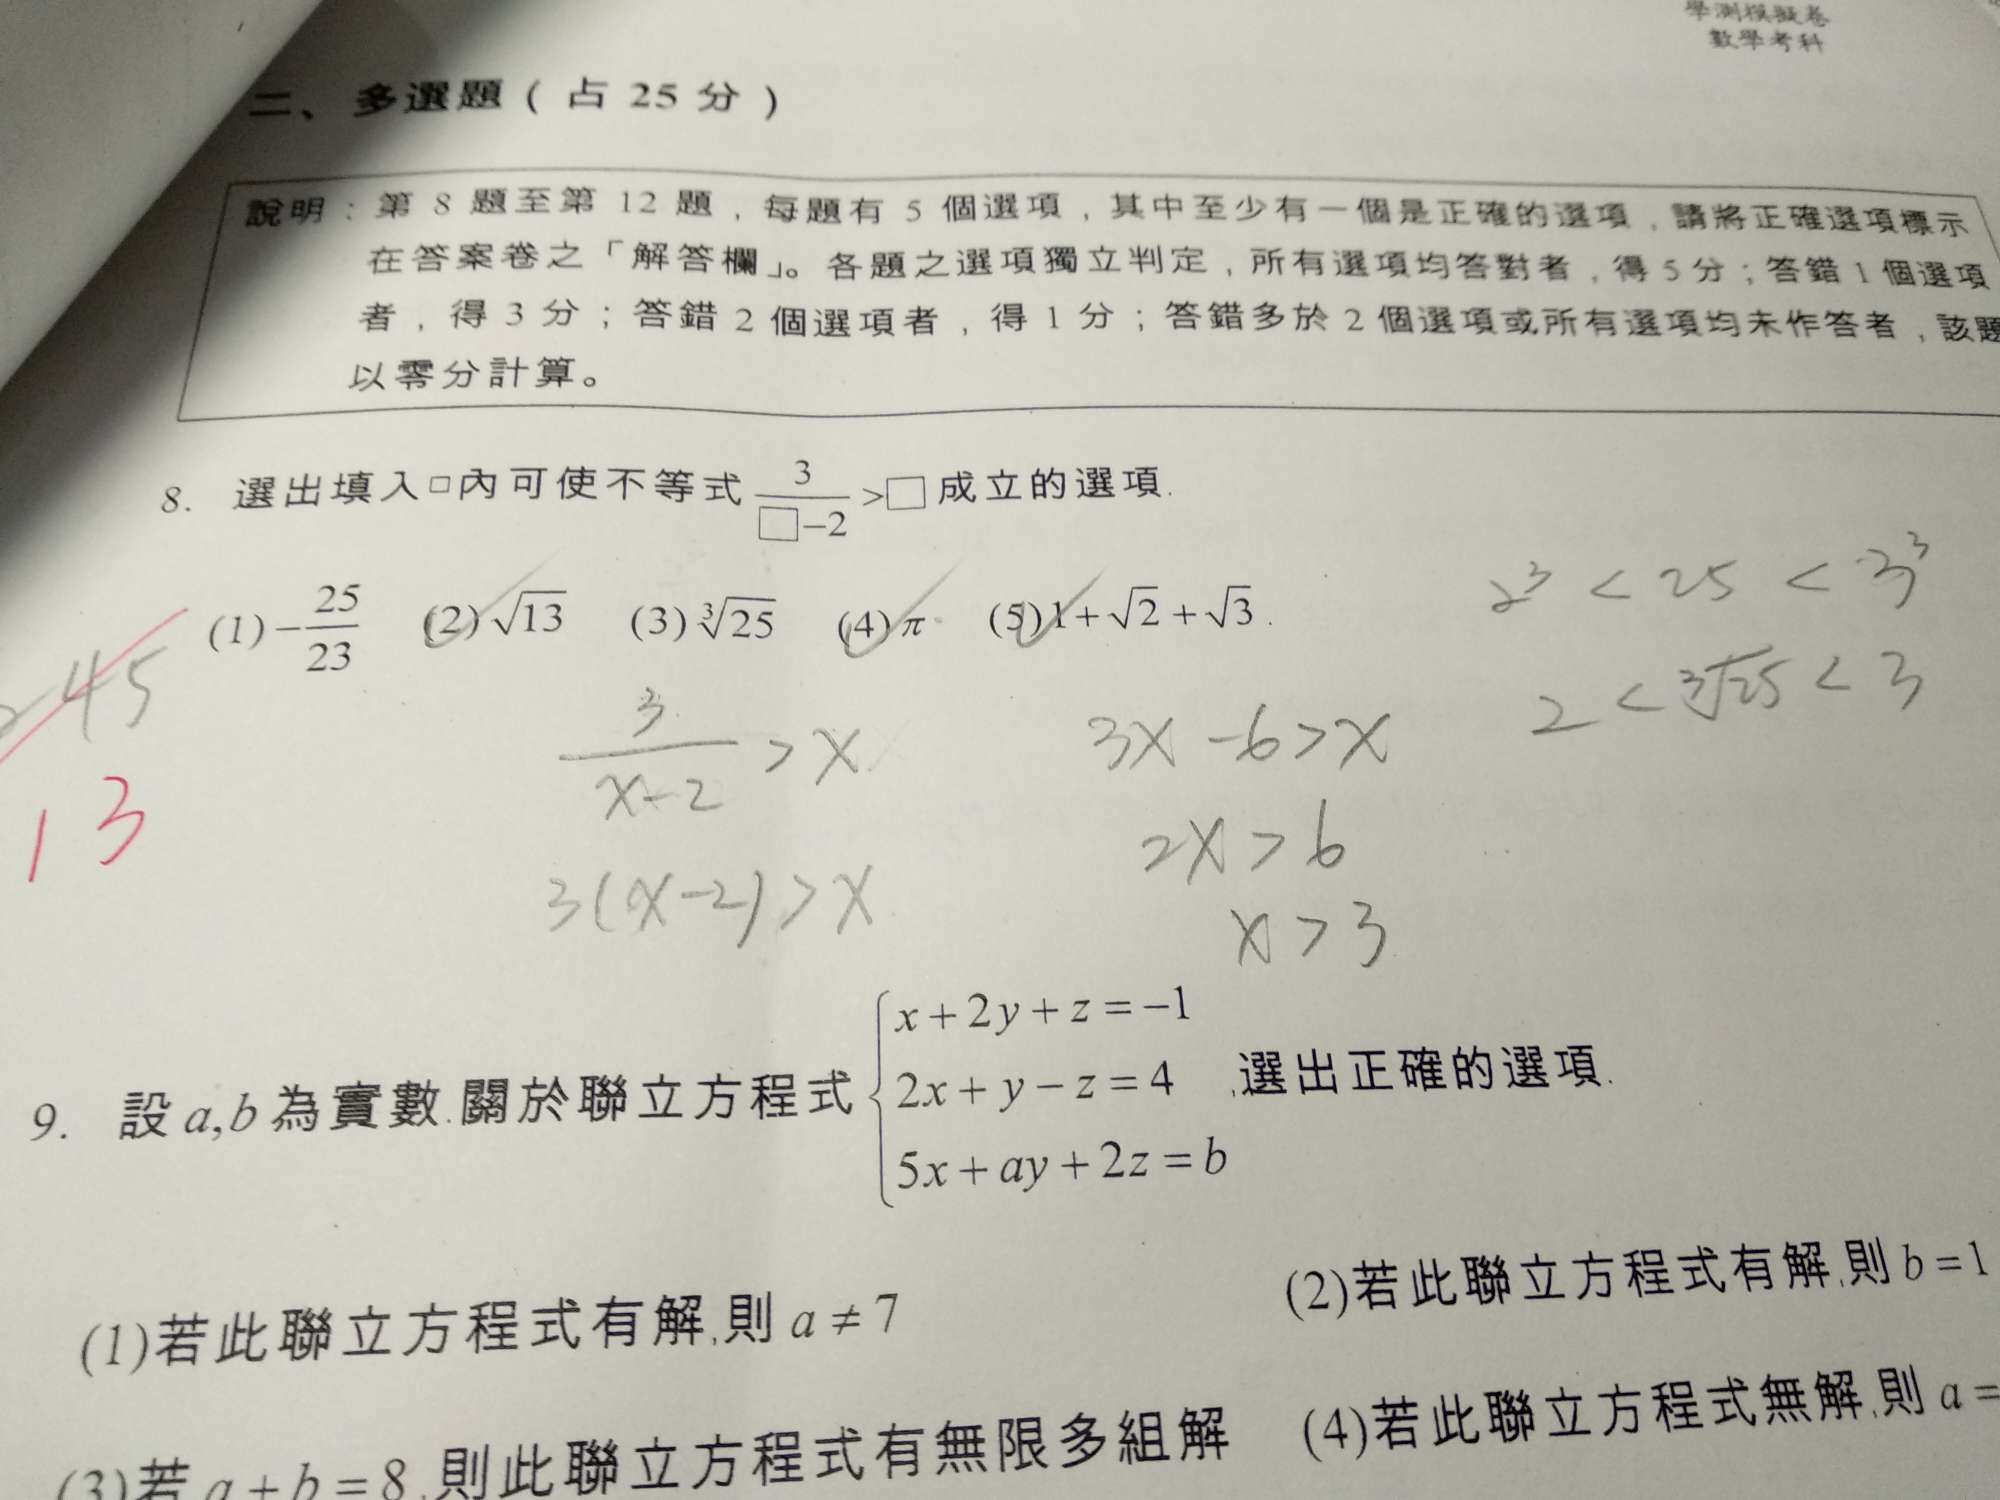 學測模擬卷
數學考科
二、多選題(占25分)
說明:第8題至第12題,每題有5個選項,其中至少有一個是正確的選項,請將正確選項標示
在答案卷之「解答欄」。各題之選項獨立判定,所有選項均答對者,得5分;答錯1個選項
者,得3分;答錯2個選項者,得1分;答錯多於2個選項或所有選項均未作答者,該題
以零分計算。
8. 選出填入□內可使不等式 3/(□−2) >□成立的選項.
(1) −25/23 (2) √13 (3) ∛25 (4) π (5) 1+√2+√3.
245
13
3/(x−2) > x
3(x−2) > x
3x −6 > x
2x > 6
x > 3
2³ < 25 < 3³
2 < ∛25 < 3
9. 設a,b為實數.關於聯立方程式 { x+2y+z=−1
2x+y−z=4 ,選出正確的選項.
5x+ay+2z=b
(1)若此聯立方程式有解,則a≠7
(2)若此聯立方程式有解,則b=1
(3)若a+b=8,則此聯立方程式有無限多組解
(4)若此聯立方程式無解,則a=